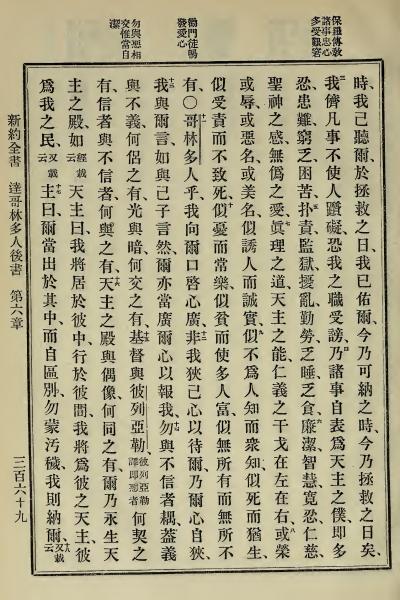 保羅傳教
諸事忠心
多受艱窘
勸門徒暢
發愛心
勿與惡相
交惟當自
潔
時、我已聽爾、於拯救之日、我已佑爾、今乃可納之時、今乃拯救之日矣、
三我儕凡事不使人躓礙、恐我之職受謗、四乃諸事自表爲天主之僕、即多
忍患難、窮乏、困苦、五扑責、監獄、擾亂、勤勞、乏睡、乏食、六廉潔、智慧、寬忍、仁慈、
聖神之感、無僞之愛、七眞理之道、天主之能、仁義之干戈、在左在右、八或榮
或辱、或惡名、或美名、似誘人而誠實、九似不爲人知而衆知、似死而猶生、
似受責而不致死、十似憂而常樂、似貧而使多人富、似無所有而無所不
有、〇十一哥林多人乎、我向爾口啓心廣、十二非我狹己心以待爾、乃爾心自狹、
十三我與爾言、如與己子言、然爾亦當廣爾心以報我、十四勿與不信者耦、蓋義
與不義何侶之有、光與暗何交之有、十五基督與彼列亞勒、彼列亞勒譯即惡者何契之
有、信者與不信者、何與之有、十六天主之殿與偶像何同之有、爾乃永生天
主之殿、如經載云天主曰、我將居於彼中、行於彼間、我將爲彼之天主、彼
爲我之民、又載云十七主曰、爾當出於其中、而自區別、勿蒙汚穢、我則納爾、十八又載
新約全書 達哥林多人後書 第六章 三百六十九